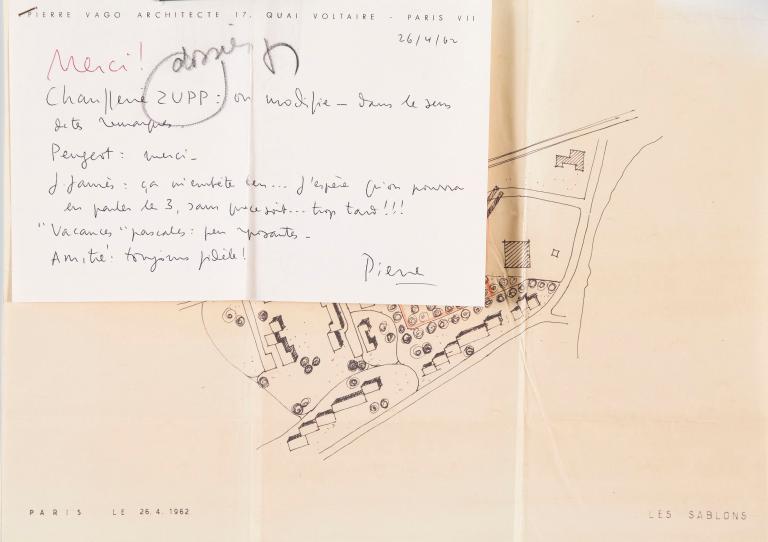 PIERRE VAGO ARCHITECTE 17, QUAI VOLTAIRE - PARIS VII
26/4/62
Merci! dossier
ZUPP: on modifie - dans le sens
des remarques.
Peugeot: merci -
J. Jaurès: ça m'embête ... J'espère qu'on pourra
en parler le 3, sans que ce soit... trop tard!!!
"Vacances" pascales: peu reposantes -
Amitié: toujours fidèle!
Pierre
PARIS LE 26.4.1962
LES SABLONS